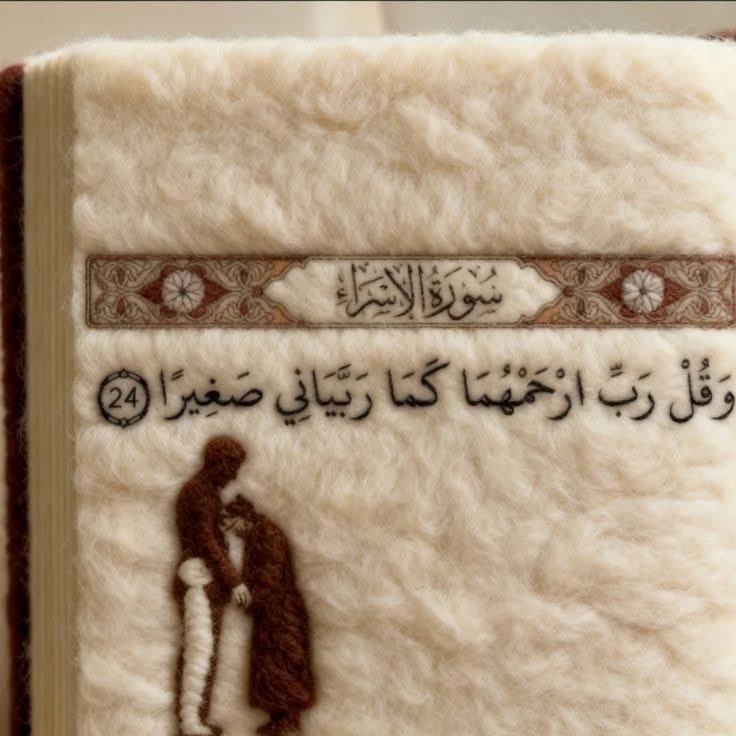 سُورَةُ الْإِسْرَاءِ
وَقُلْ رَبِّ ارْحَمْهُمَا كَمَا رَبَّيَانِي صَغِيرًا 24